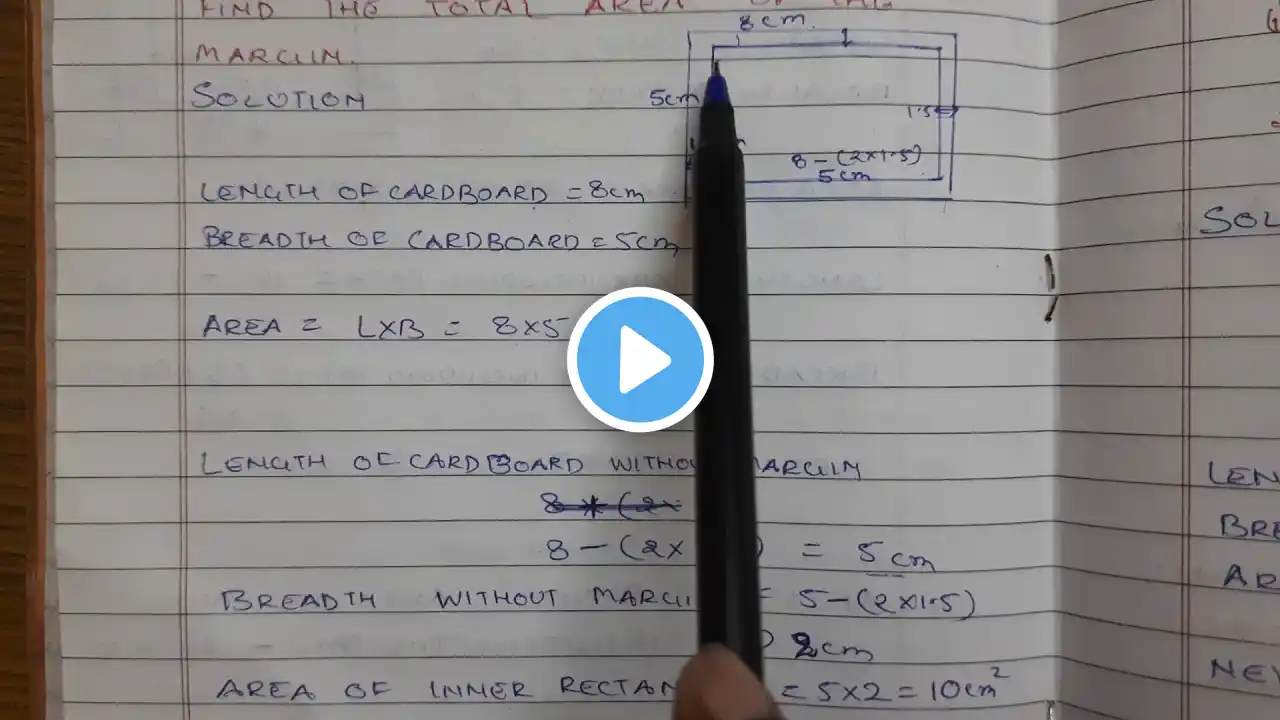 FIND THE TOTAL AREA OF THE
MARGIN.
8cm.
SOLUTION
5cm
1.5
8-(2x1.5)
5cm
LENGTH OF CARDBOARD = 8cm
BREADTH OF CARDBOARD = 5cm
AREA = LXB = 8x5
LENGTH OF CARDBOARD WITHOU MARGIN
8-(2x ) = 5cm
BREADTH WITHOUT MARGI = 5-(2x1.5)
2cm
AREA OF INNER RECTAN = 5x2=10cm²
SOL
LEN
BRE
AR
NE